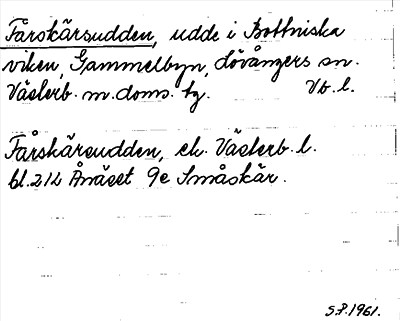 Fårskärsudden, udde i Bottniska
viken, Gammelbyn, Lövångers sn.
Västerb. m. doms. tg. Vb. l.
Fårskärsudden, ek. Västerb. l.
bl. 212 Ånäset 9e Småskär.
S.P. 1961.